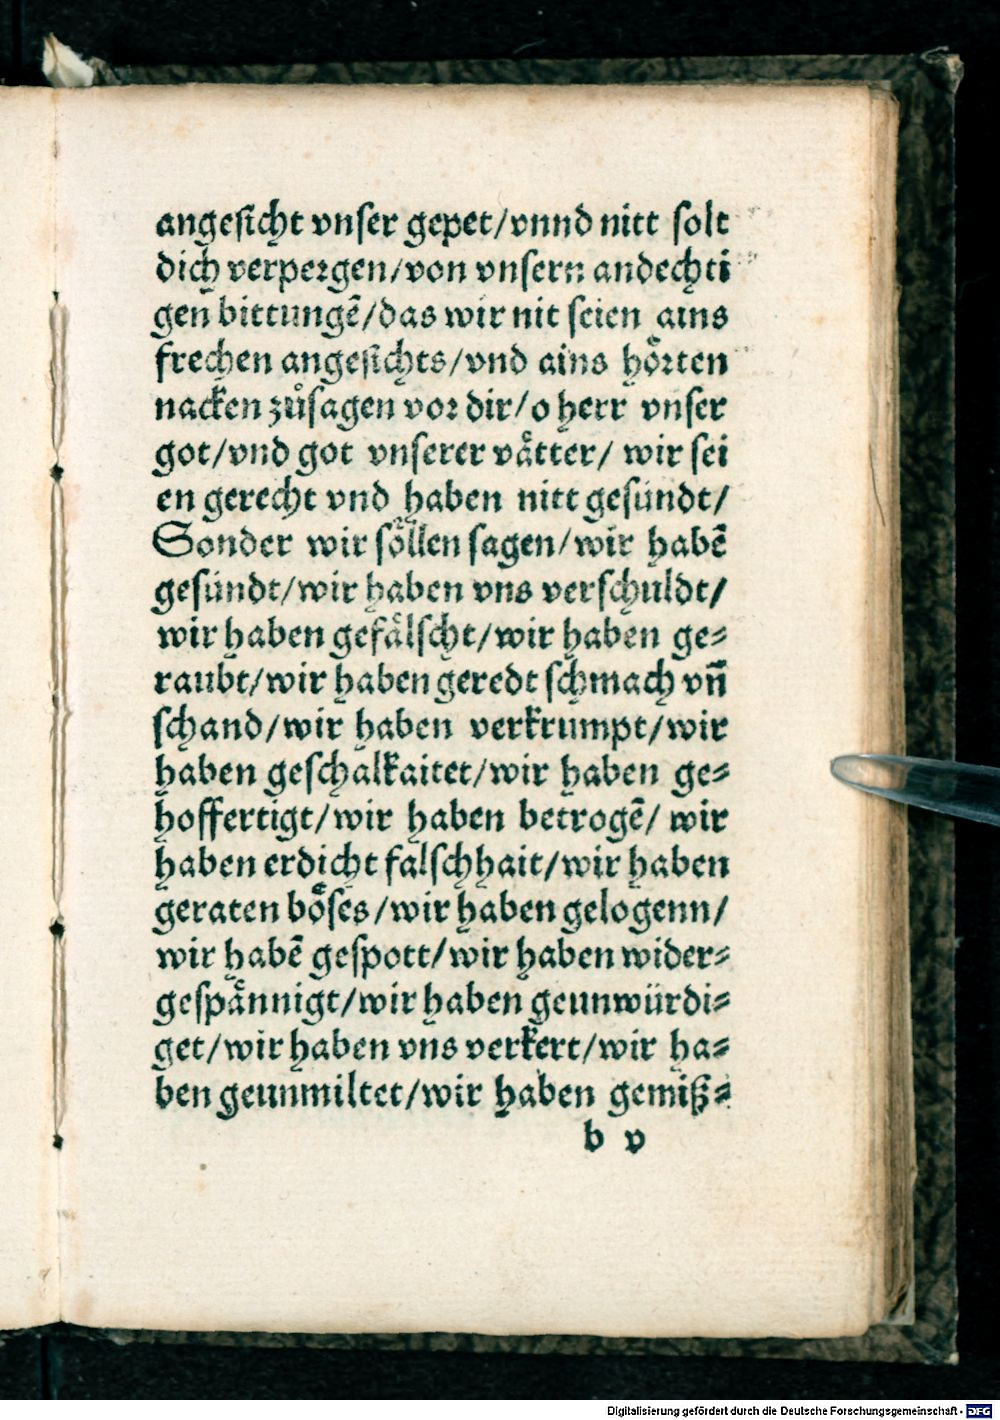 angeſicht vnſer gepet/vnnd nitt ſolt
dich verpergen/von vnſern andechti
gen bittungē/das wir nit ſeien ains
frechen angeſichts/vnd ains hoͤrten
nacken zůſagen vor dir/o herr vnſer
got/vnd got vnſerer vaͤtter/ wir ſei
en gerecht vnd haben nitt geſündt/
Sonder wir ſoͤllen ſagen/wir habē
geſündt/wir haben vns verſchuldt/
wir haben gefaͤlſcht/wir haben ge⸗
raubt/wir haben geredt ſchmach vñ
ſchand/wir haben verkrumpt/wir
haben geſchalkaitet/wir haben ge⸗
hoffertigt/wir haben betrogē/ wir
haben erdicht falſchhait/wir haben
geraten boͤſes/wir haben gelogenn/
wir habē geſpott/wir haben wider⸗
geſpaͤnnigt/wir haben geunwürdi⸗
get/wir haben vns verkert/wir ha⸗
ben geunmiltet/wir haben gemiß⸗
b v
Digitalisierung gefördert durch die Deutsche Forschungsgemeinschaft - DFG